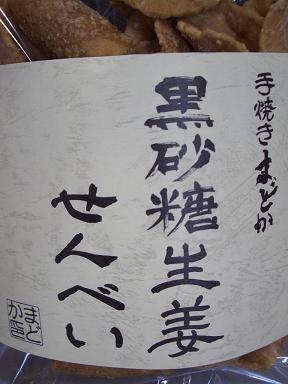 手焼きまどか
黒砂糖生姜
せんべい
まど
か㊞